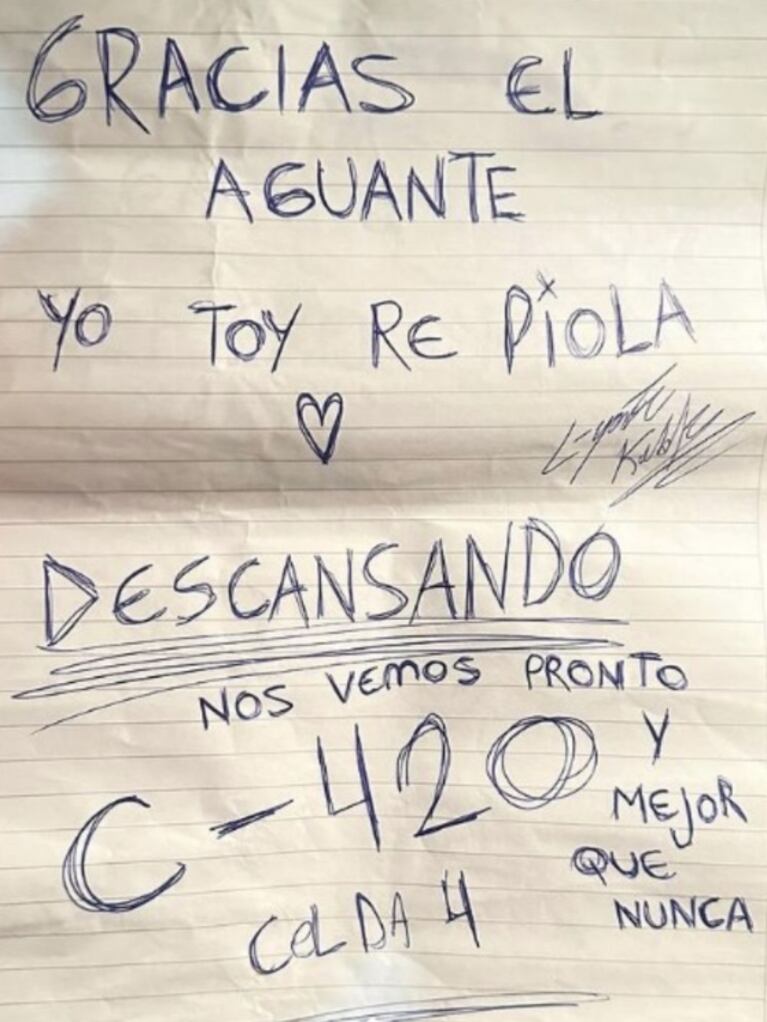 GRACIAS EL
AGUANTE
YO TOY RE PiOLA
DESCANSANDO
NOS VEMOS PRONTO
Y
MEJOR
QUE
NUNCA
C-420
CELDA 4